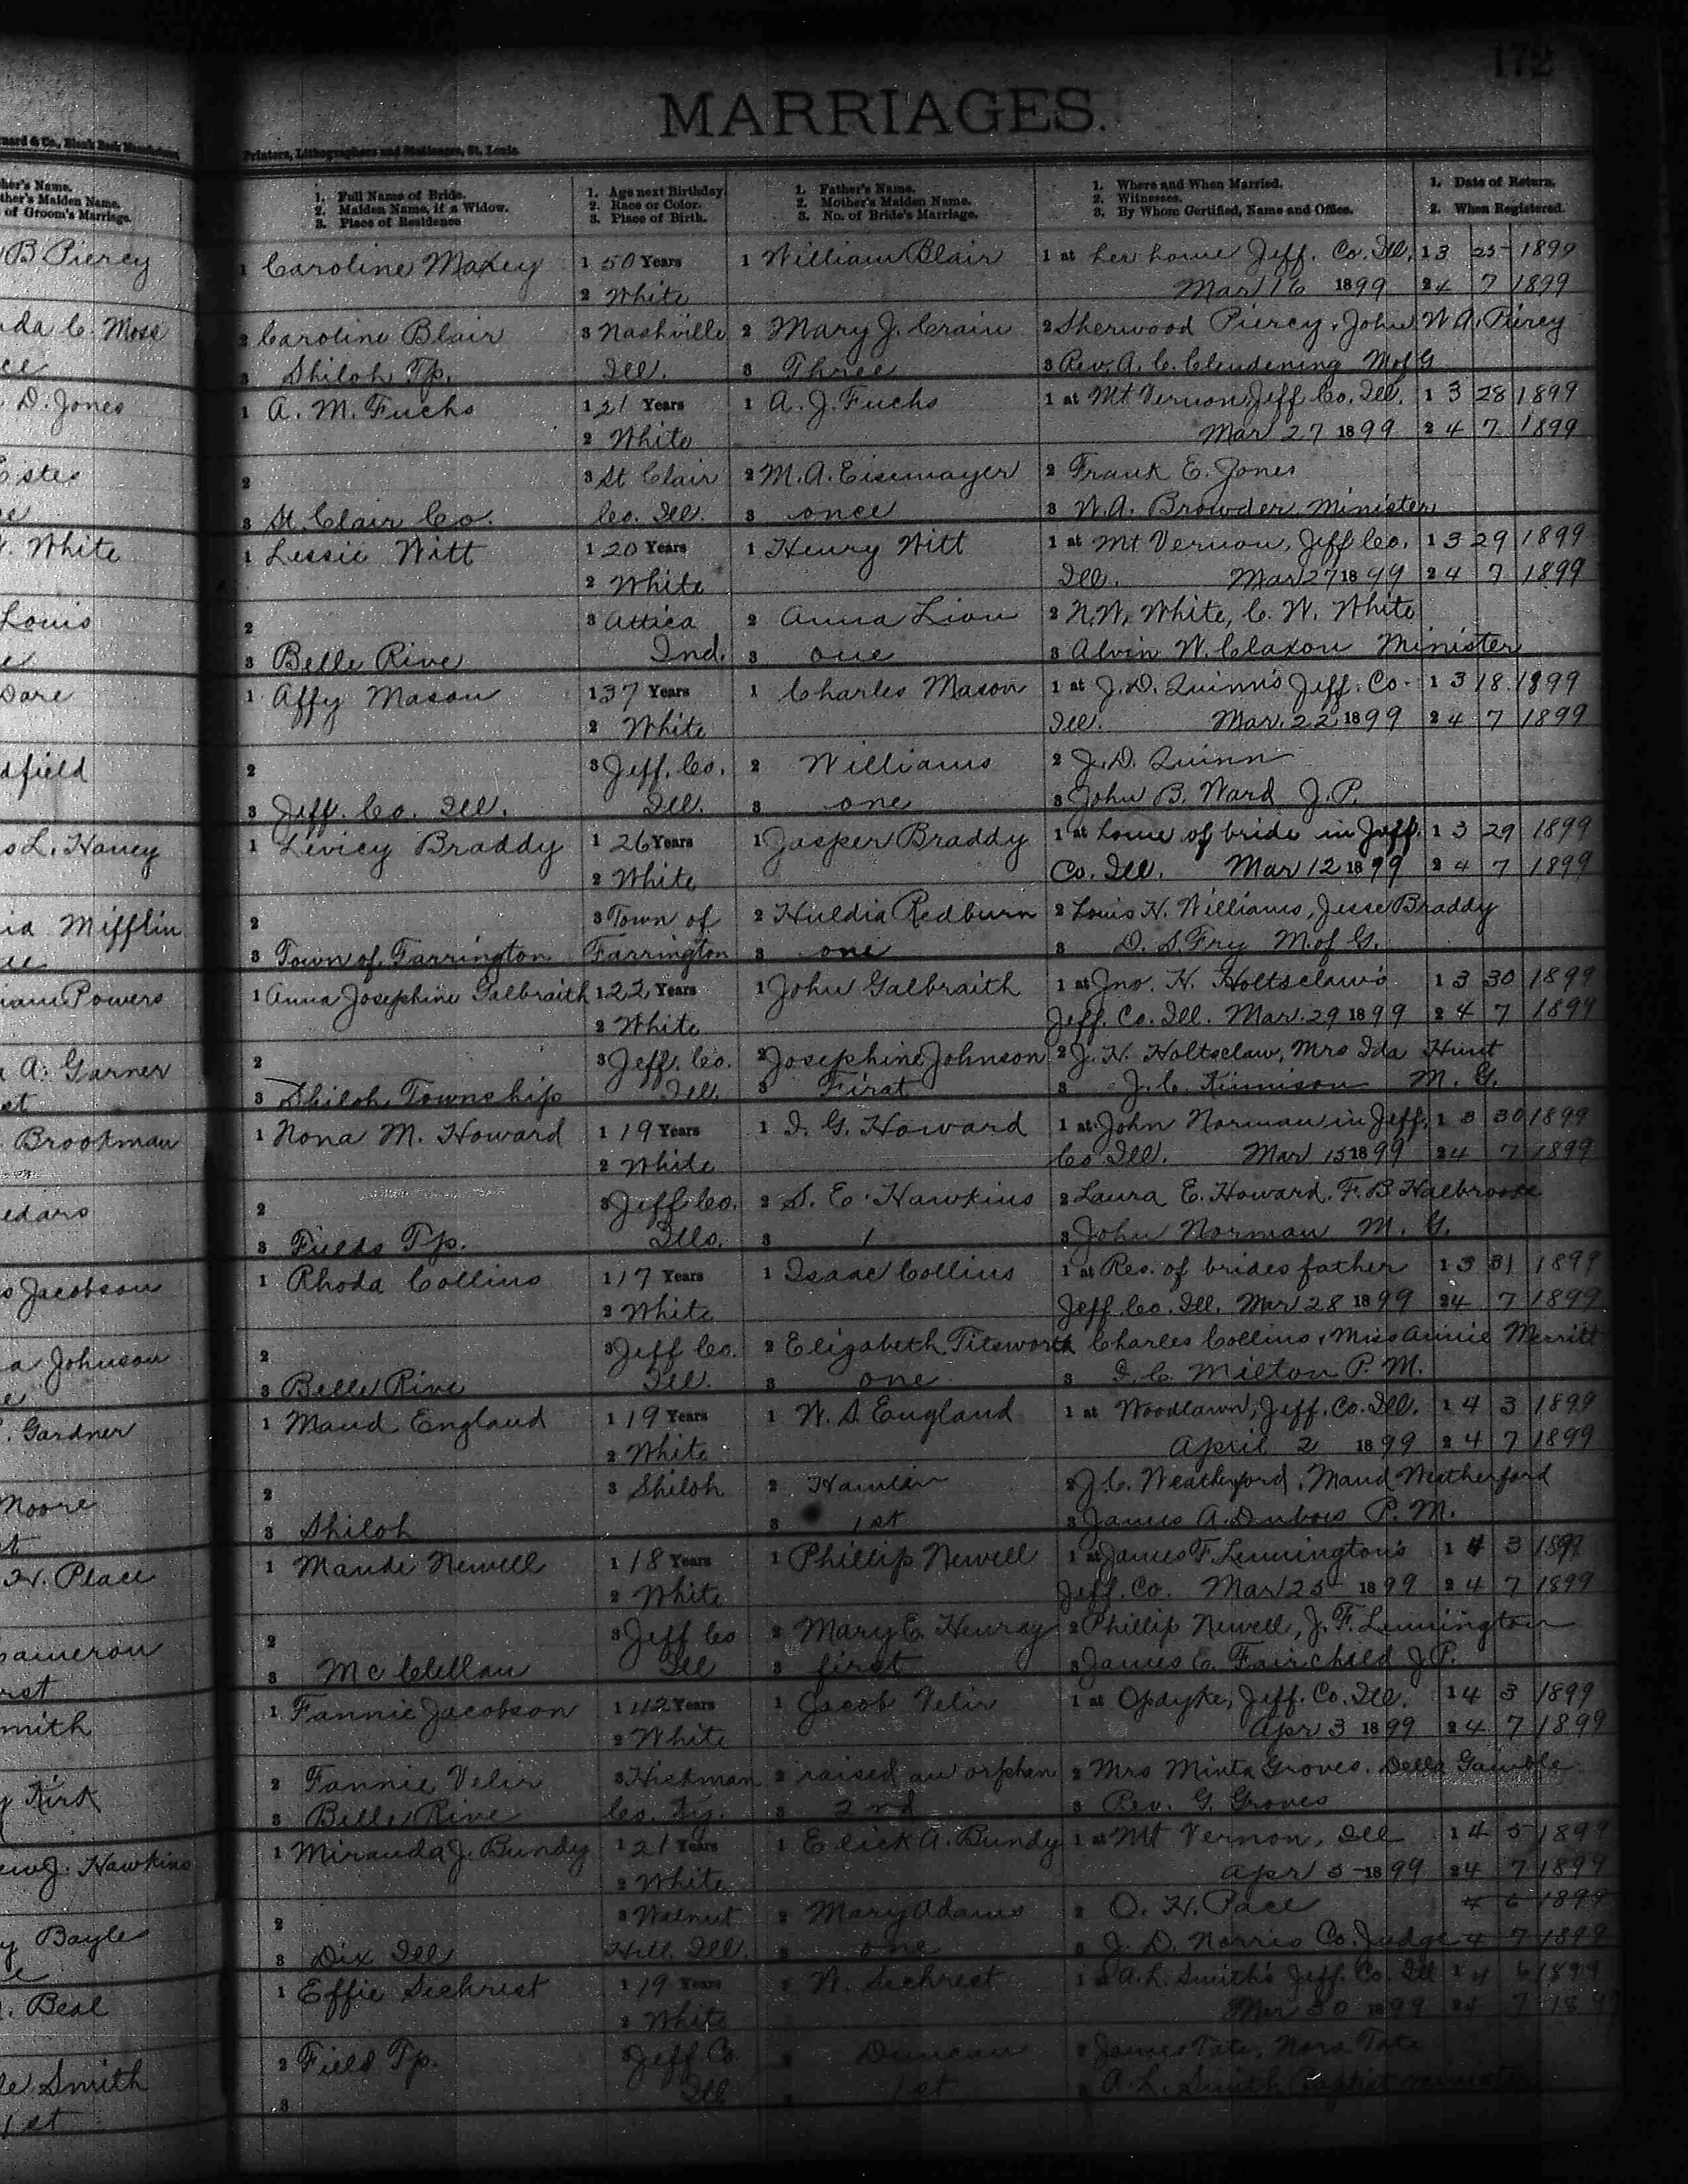 172
MARRIAGES.
Printers, Lithographers and Stationers, St. Louis.
1. Full Name of Bride. 2. Maiden Name, if a Widow. 3. Place of Residence
1. Age next Birthday. 2. Race or Color. 3. Place of Birth.
1. Father's Name. 2. Mother's Maiden Name. 3. No. of Bride's Marriage.
1. Where and When Married. 2. Witnesses. 3. By Whom Certified, Name and Office.
1. Date of Return. 2. When Registered.
B Piercy 1 Caroline Maxey 1 50 Years 1 William Blair 1 at her home Jeff. Co. Ill. 1 3 25 1899
2 White Mar 16 1899 2 4 7 1899
da C. Moss 2 Caroline Blair 3 Nashville 2 Mary J. Crain 2 Sherwood Piercy, John W. A. Piercy
3 Shiloh Tp. Ill. 3 Three 3 Rev. A. C. Clendening M of G
D. Jones 1 A. M. Fuchs 1 21 Years 1 A. J. Fuchs 1 at Mt Vernon, Jeff Co. Ill. 1 3 28 1899
2 White Mar 27 1899 2 4 7 1899
Estes 2 3 St Clair 2 M. A. Eisemayer 2 Frank E. Jones
3 St. Clair Co. Co. Ill. 3 once 3 W. A. Browder Minister
White 1 Lessie Witt 1 20 Years 1 Henry Witt 1 at Mt Vernon, Jeff Co. 1 3 29 1899
2 White Ill. Mar 27 1899 2 4 7 1899
Louis 2 3 Attica 2 Anna Lion 2 N. W. White, C. W. White
3 Belle Rive Ind. 3 one 3 Alvin W. Claxon Minister
Dare 1 Affy Mason 1 37 Years 1 Charles Mason 1 at J. D. Quinn's Jeff. Co. 1 3 18 1899
2 White Ill. Mar. 22 1899 2 4 7 1899
dfield 2 3 Jeff. Co. 2 Williams 2 J. D. Quinn
3 Jeff. Co. Ill. Ill. 3 one 3 John B. Ward J. P.
s L. Haney 1 Levicy Braddy 1 26 Years 1 Jasper Braddy 1 at home of bride in Jeff. 1 3 29 1899
2 White Co. Ill. Mar 12 1899 2 4 7 1899
ia Mifflin 2 3 Town of 2 Huldia Redburn 2 Louis H. Williams, Jesse Braddy
3 Town of Farrington Farrington 3 one 3 D. S. Fry M. of G.
iam Powers 1 Anna Josephine Galbraith 1 22 Years 1 John Galbraith 1 at Jno. H. Holtsclaw's 1 3 30 1899
2 White Jeff. Co. Ill. Mar. 29 1899 2 4 7 1899
A. Garner 2 3 Jeff. Co. 2 Josephine Johnson 2 J. H. Holtsclaw, Mrs Ida Hunt
3 Shiloh Township Ill. 3 First 3 J. C. Kinnison M. G.
Brookman 1 Nona M. Howard 1 19 Years 1 I. G. Howard 1 at John Norman in Jeff. 1 3 30 1899
2 White Co Ill. Mar 15 1899 2 4 7 1899
edars 2 3 Jeff Co. 2 S. E. Hawkins 2 Laura E. Howard, F. B Halbrooke
3 Fields Tp. Ills. 3 1 3 John Norman M. G.
s Jacobson 1 Rhoda Collins 1 17 Years 1 Isaac Collins 1 at Res. of brides father 1 3 31 1899
2 White Jeff. Co. Ill. Mar 28 1899 2 4 7 1899
a Johnson 2 3 Jeff Co. 2 Elizabeth Titsworth Charles Collins, Miss Annie Merritt
3 Belle Rive Ill. 3 one 3 I. C. Milton P. M.
Gardner 1 Maud England 1 19 Years 1 W. S. England 1 at Woodlawn, Jeff. Co. Ill. 1 4 3 1899
2 White April 2 1899 2 4 7 1899
Moore 2 3 Shiloh 2 Hamlin 2 J. C. Weatherford, Maud Weatherford
3 Shiloh 3 1st 3 James A. Dubois P. M.
H. Place 1 Maude Newell 1 18 Years 1 Phillip Newell 1 at James F. Lennington's 1 4 3 1899
2 White Jeff. Co. Mar 25 1899 2 4 7 1899
Cameron 2 3 Jeff Co 2 Mary E. Henray 2 Phillip Newell, J. F. Lennington
rst 3 McClellan Ill 3 first 3 James E. Fairchild J. P.
mith 1 Fannie Jacobson 1 42 Years 1 Jacob Velir 1 at Opdyke, Jeff. Co. Ill. 1 4 3 1899
2 White Apr 3 1899 2 4 7 1899
Kirk 2 Fannie Velir 3 Hickman 2 raised an orphan 2 Mrs Minta Groves, Della Gamble
3 Belle Rive Co. Ky. 3 2nd 3 Rev. G. Groves
J. Hawkins 1 Miranda J. Bundy 1 21 Years 1 Elick A. Bundy 1 at Mt Vernon, Ill 1 4 5 1899
2 White Apr 5 1899 2 4 7 1899
Bayle 2 3 Walnut 2 Mary Adams 2 O. H. Pace 4 6 1899
3 Dix Ill Hill, Ill. 3 one 3 J. D. Norris Co. Judge 4 7 1899
Beal 1 Effie Sechrest 1 19 Years W. Sechrest 1 at A. L. Smith's Jeff. Co. Ill 1 4 6 1899
2 White Mar 30 1899 2 4 7 18
Smith 2 Field Tp. 3 Jeff. Co. Duncan James Tate, Nora Tate
1st 3 Ill 1st A. L. Smith Baptist minister